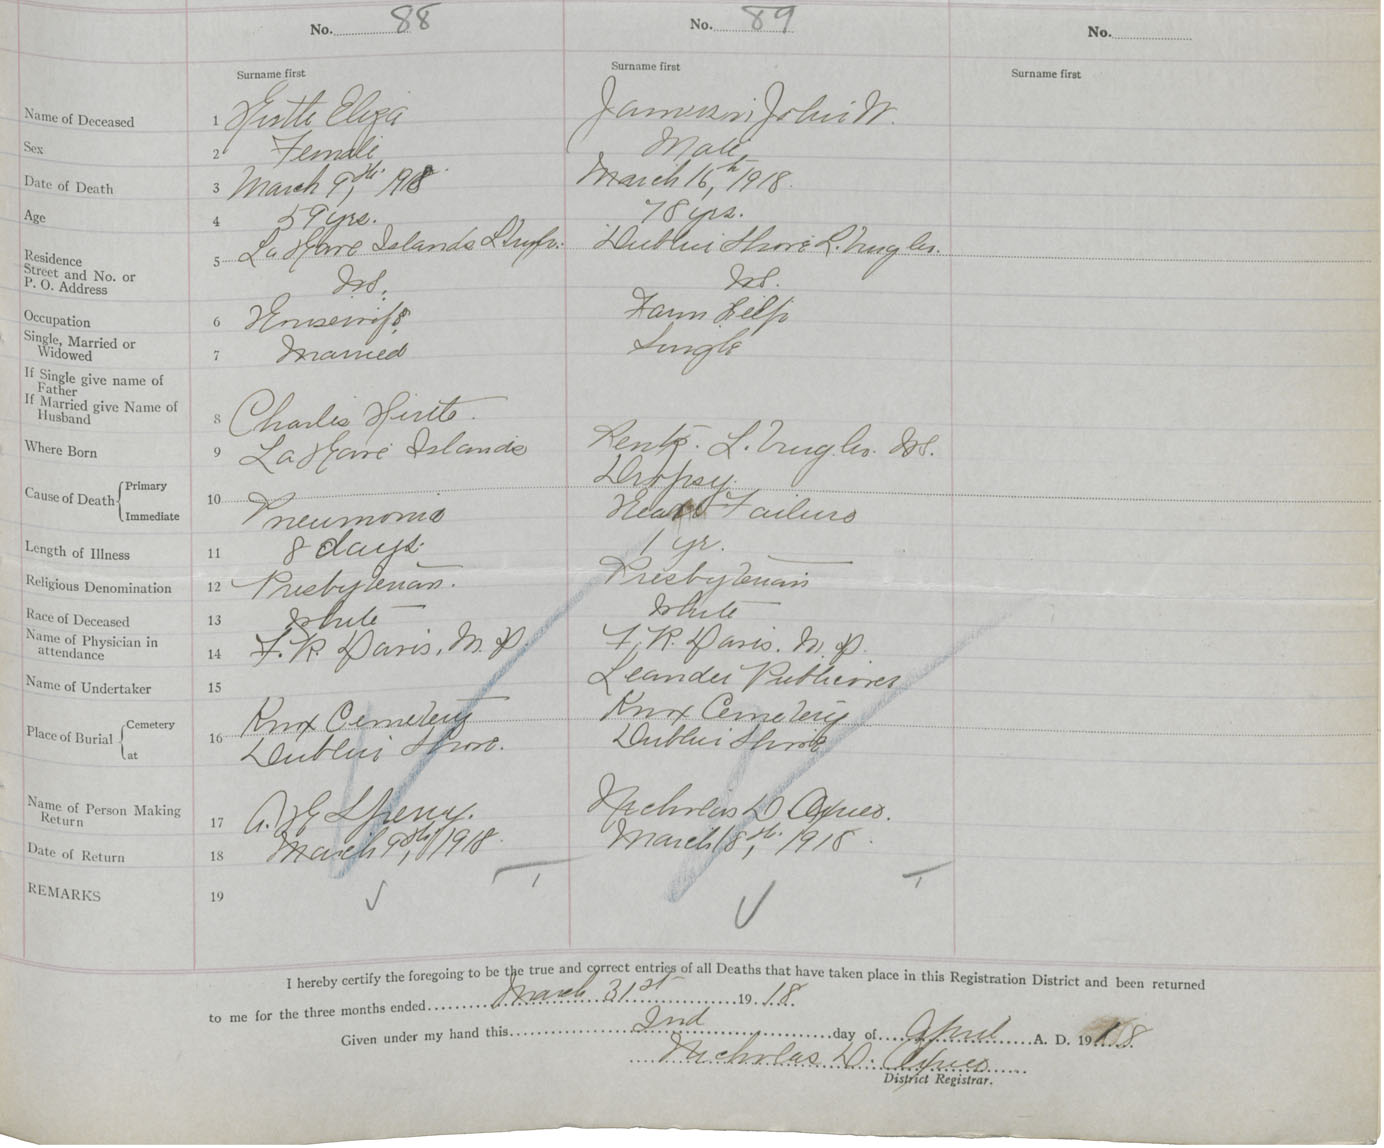 No. 88 No. 89 No.
Surname first Surname first Surname first
Name of Deceased 1 Hirtle Eliza John W.
Sex 2 Female Male
Date of Death 3 March 9th, 1918 March 16th, 1918.
Age 4 59 yrs. 78 yrs.
Residence
Street and No. or
P. O. Address
5 LaHave Islands Dublin Shore
NS. NS.
Occupation 6 Housewife Farm Help
Single, Married or
Widowed
7 Married Single
If Single give name of
Father
If Married give Name of
Husband
8 Charles Hirtle.
Where Born 9 LaHave Islands NS.
Cause of Death Primary Dropsy.
10
Immediate Pneumonia Heart Failure
Length of Illness 11 8 days 1 yr.
Religious Denomination 12 Presbyterian. Presbyterian
Race of Deceased 13 White White
Name of Physician in
attendance
14 F. R. Davis, M. D. F. R. Davis. M. D.
Name of Undertaker 15 Leander Publicover
Place of Burial Cemetery Knox Cemetery Knox Cemetery
16
at Dublin Shore. Dublin Shore
Name of Person Making
Return
17 Nicholas D.
Date of Return 18 March 1918 March 18th, 1918.
REMARKS 19
I hereby certify the foregoing to be the true and correct entries of all Deaths that have taken place in this Registration District and been returned
to me for the three months ended March 31st 1918.
Given under my hand this 2nd day of April A. D. 1918
Nicholas D.
District Registrar.